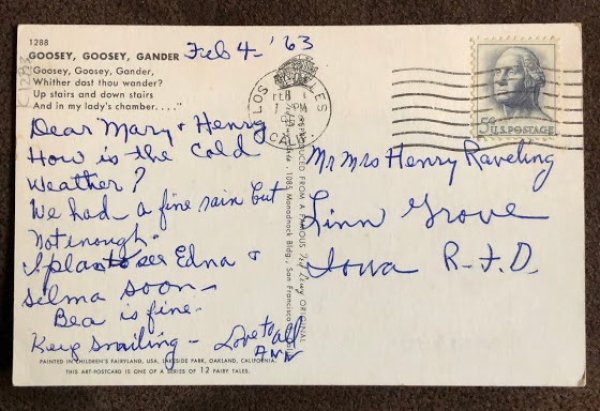 1288
GOOSEY, GOOSEY, GANDER
Goosey, Goosey, Gander,
Whither dost thou wander?
Up stairs and down stairs
And in my lady's chamber. . . ."
Feb 4 - '63
Dear Mary + Henry
How is the cold
weather?
We had - a fine rain but
not enough -
I plan to see Edna +
Selma soon -
Bea is fine.
Keep smiling - Love to all
Ann
PAINTED IN CHILDREN'S FAIRYLAND, USA, LAKESIDE PARK, OAKLAND, CALIFORNIA.
THIS ART-POSTCARD IS ONE OF A SERIES OF 12 FAIRY TALES.
REPRODUCED FROM A FAMOUS ORIGINAL
1085 Monadnock Bldg., San Francisco
LOS ANGELES
FEB
PM
CALIF.
5¢ U.S. POSTAGE
Mr Mrs Henry Raveling
Linn Grove
Iowa R-F-D.